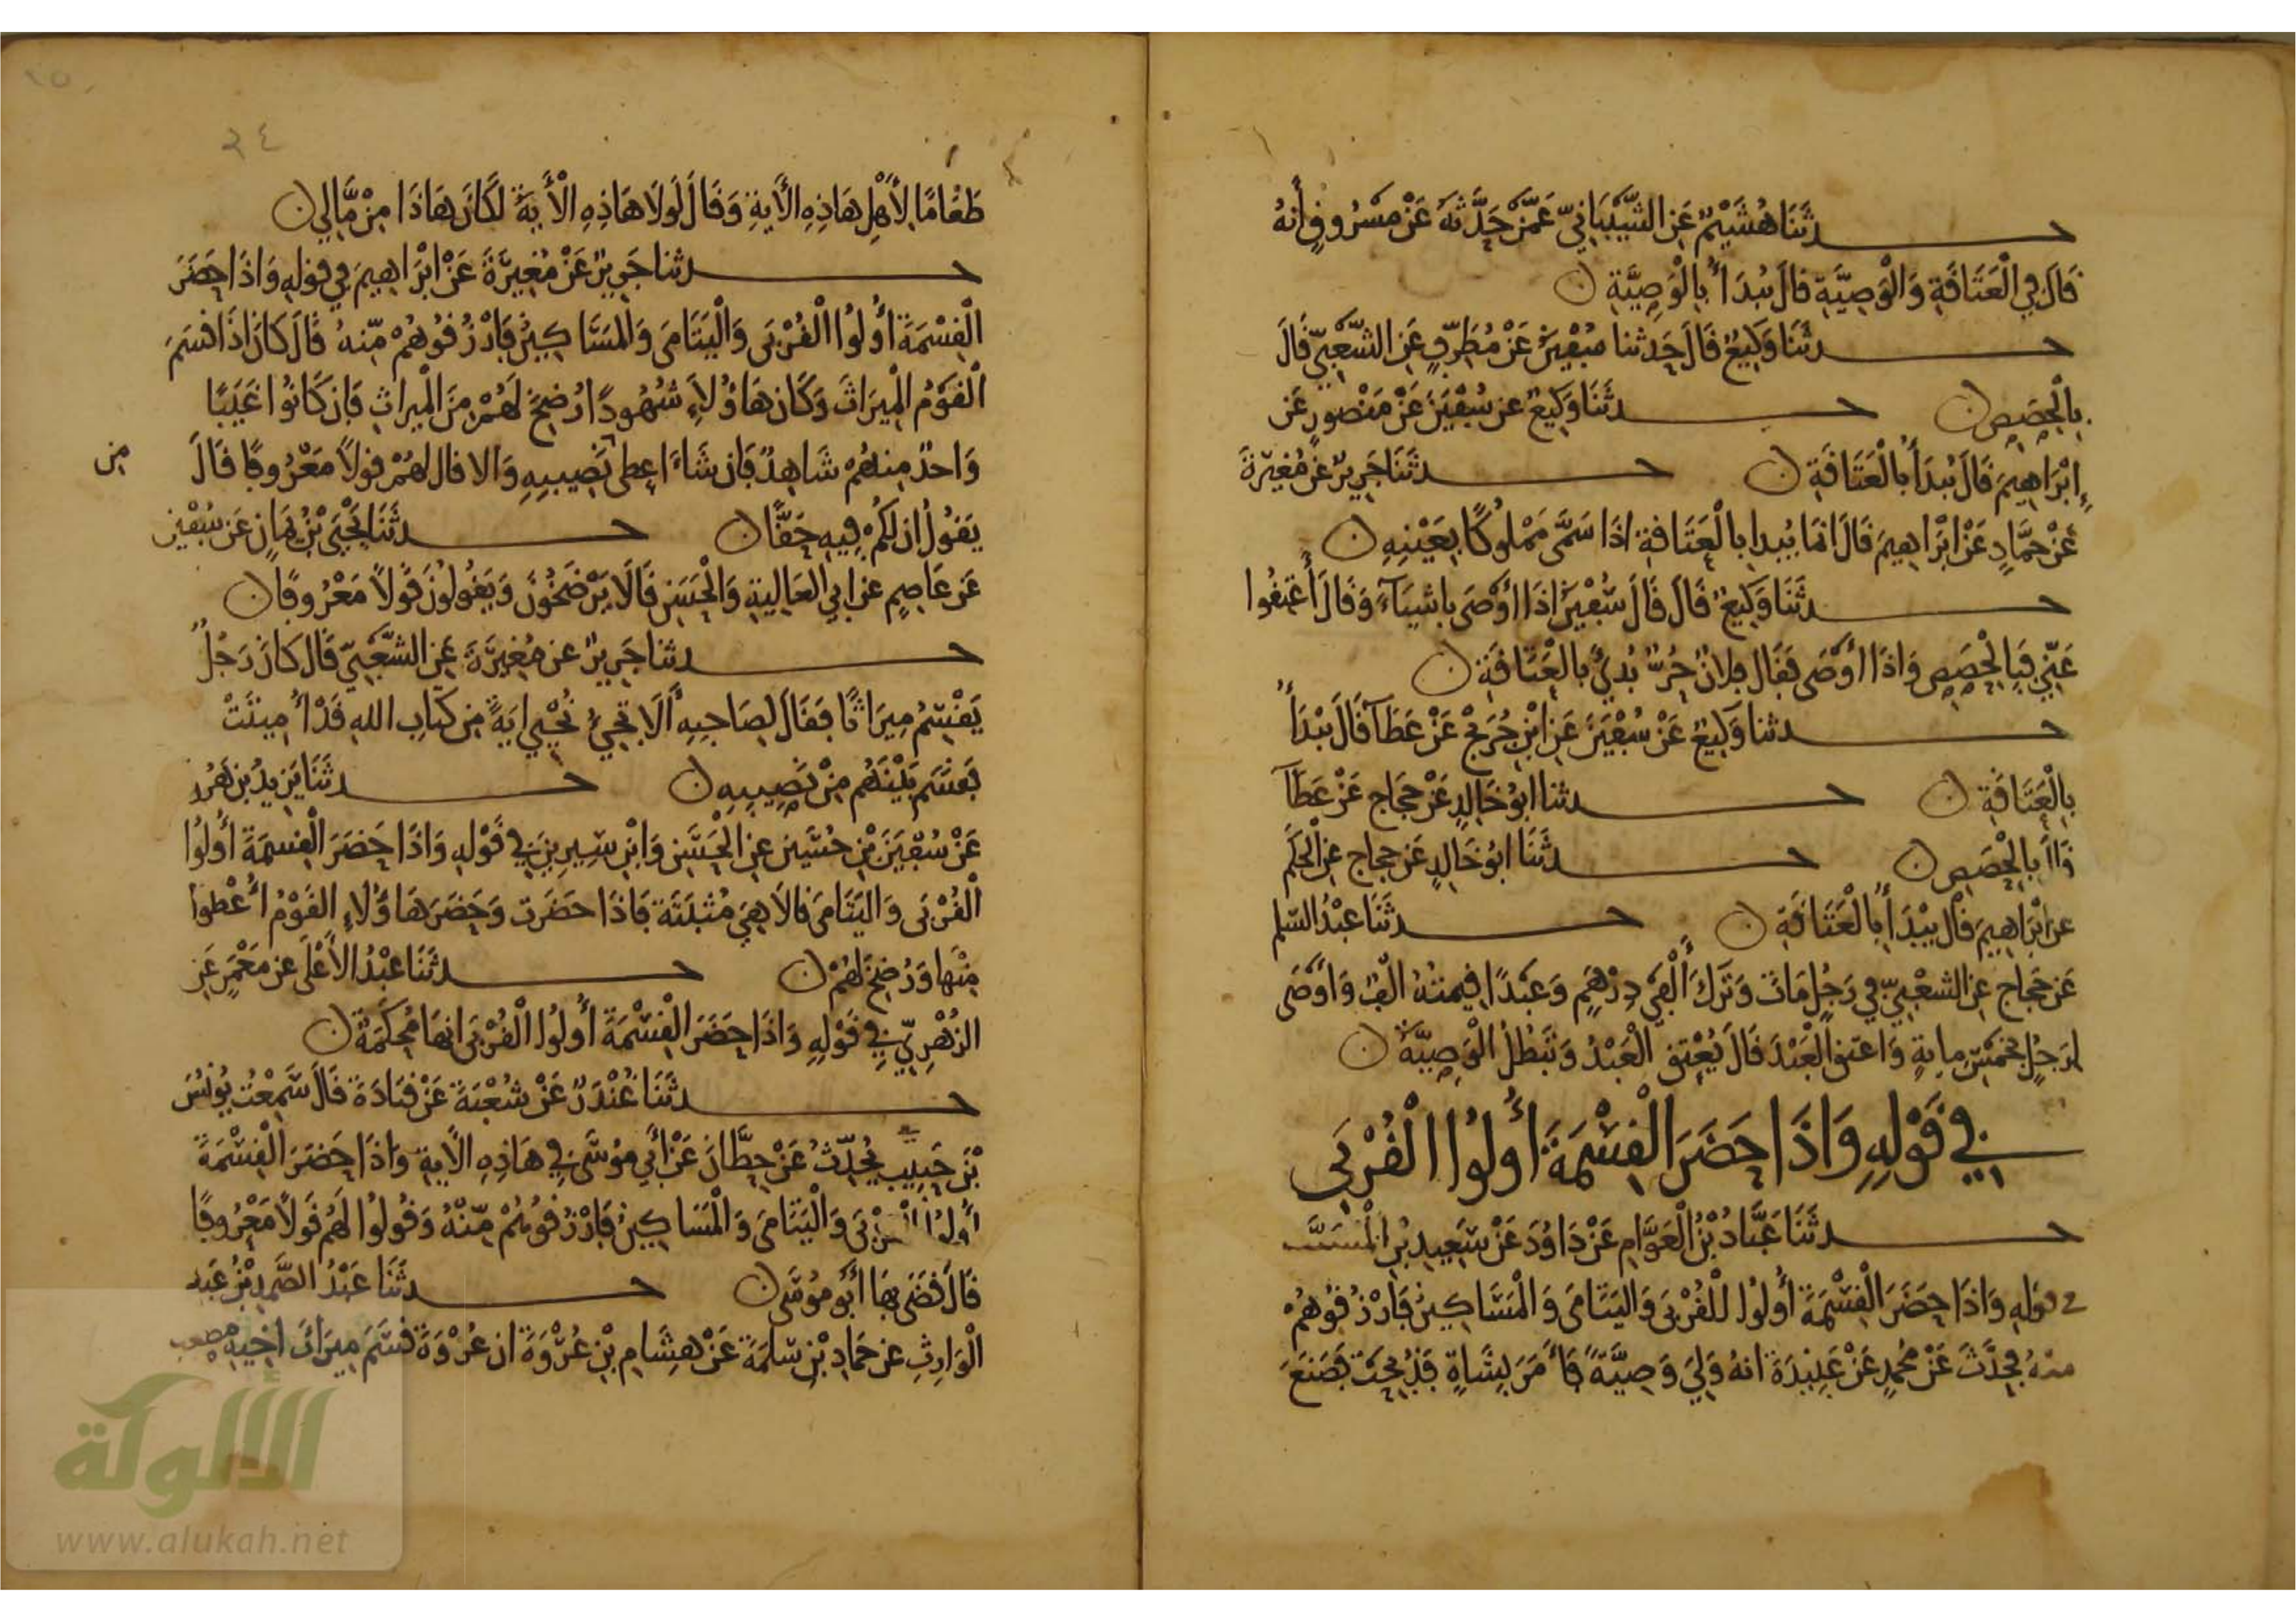 حدثنا هشيم عن الشيباني عمن حدثه عن مسروق أنه
قال في العتاقة والوصية قال يبدأ بالوصية
حدثنا وكيع قال حدثنا سفين عن مطرف عن الشعبي قال
بالحصص حدثنا وكيع عن سفين عن منصور عن
إبراهيم قال يبدأ بالعتاقة حدثنا جرير عن مغيرة
عن حماد عن إبراهيم قال انما يبدا بالعتاقة اذا سمى مملوكا بعينه
حدثنا وكيع قال قال سفين اذا أوصى باشياء وقال أعتقوا
عني فبالحصص واذا أوصى فقال فلان حر بدئ بالعتاقة
حدثنا وكيع عن سفين عن ابن جريج عن عطآ قال يبدأ
بالعتاقة حدثنا ابو خالد عن حجاج عن عطآ
قال بالحصص حدثنا ابو خالد عن حجاج عن الحكم
عن ابراهيم قال يبدأ بالعتاقة حدثنا عبد السلم
عن حجاج عن الشعبي في رجل مات وترك ألفي درهم وعبدا قيمته الف واوصى
لرجل بخمس ماية واعتق العبد قال يعتق العبد وتبطل الوصية
في قوله واذا حضر القسمة أولوا القربى
حدثنا عباد بن العوام عن داود عن سعيد بن المسيب
في قوله واذا حضر القسمة أولوا للقربى واليتامى والمساكين فارزقوهم
منه فحدث عن محمد عن عبيدة انه ولي وصية فأمر بشاة فذبحت فصنع
٣٤
طعاما لأهل هاذه الأية وقال لولا هاذه الأية لكان هاذا من مالي
حدثنا جرير عن مغيرة عن ابراهيم في قوله واذا حضر
القسمة أولوا القربى واليتامى والمساكين فارزقوهم منه قال كان اذا قسم
القوم الميراث وكان هاؤلاء شهودا رضخ لهم من الميراث فان كانوا غيبا
واحد منهم شاهد فان شاء اعطى من نصيبه والا قال لهم قولا معروفا قال
يقول ان لكم فيه حقا حدثنا يحيى بن يمان عن سفين
عن عاصم عن ابي العالية والحسن قالا يرضخون ويقولون قولا معروفا
حدثنا جرير عن مغيرة عن الشعبي قال كان رجل
يقتسم ميراثا فقال لصاحبه ألا تجيء نحيي اية من كتاب الله قد أميتت
فقسم بينهم من نصيبه حدثنا يزيد بن هرون
عن سفين بن حسين عن الحسن وابن سيرين في قوله واذا حضر القسمة أولوا
القربى واليتامى قالا هي مثبتة فاذا حضرت وحضر هاؤلاء القوم أعطوا
منها ورضخ لهم حدثنا عبد الأعلى عن معمر عن
الزهري في قوله واذا حضر القسمة أولوا القربى انها محكمة
حدثنا غندر عن شعبة عن قتادة قال سمعت يونس
بن جبير يحدث عن حطان عن أبي موسى في هاذه الاية واذا حضر القسمة
أولوا القربى واليتامى والمساكين فارزقوهم منه وقولوا لهم قولا معروفا
قال قضى بها أبو موسى حدثنا عبد الصمد بن عبد
الوارث عن حماد بن سلمة عن هشام بن عروة ان عروة قسم ميراث اخيه مصعب
الألوكة
www.alukah.net